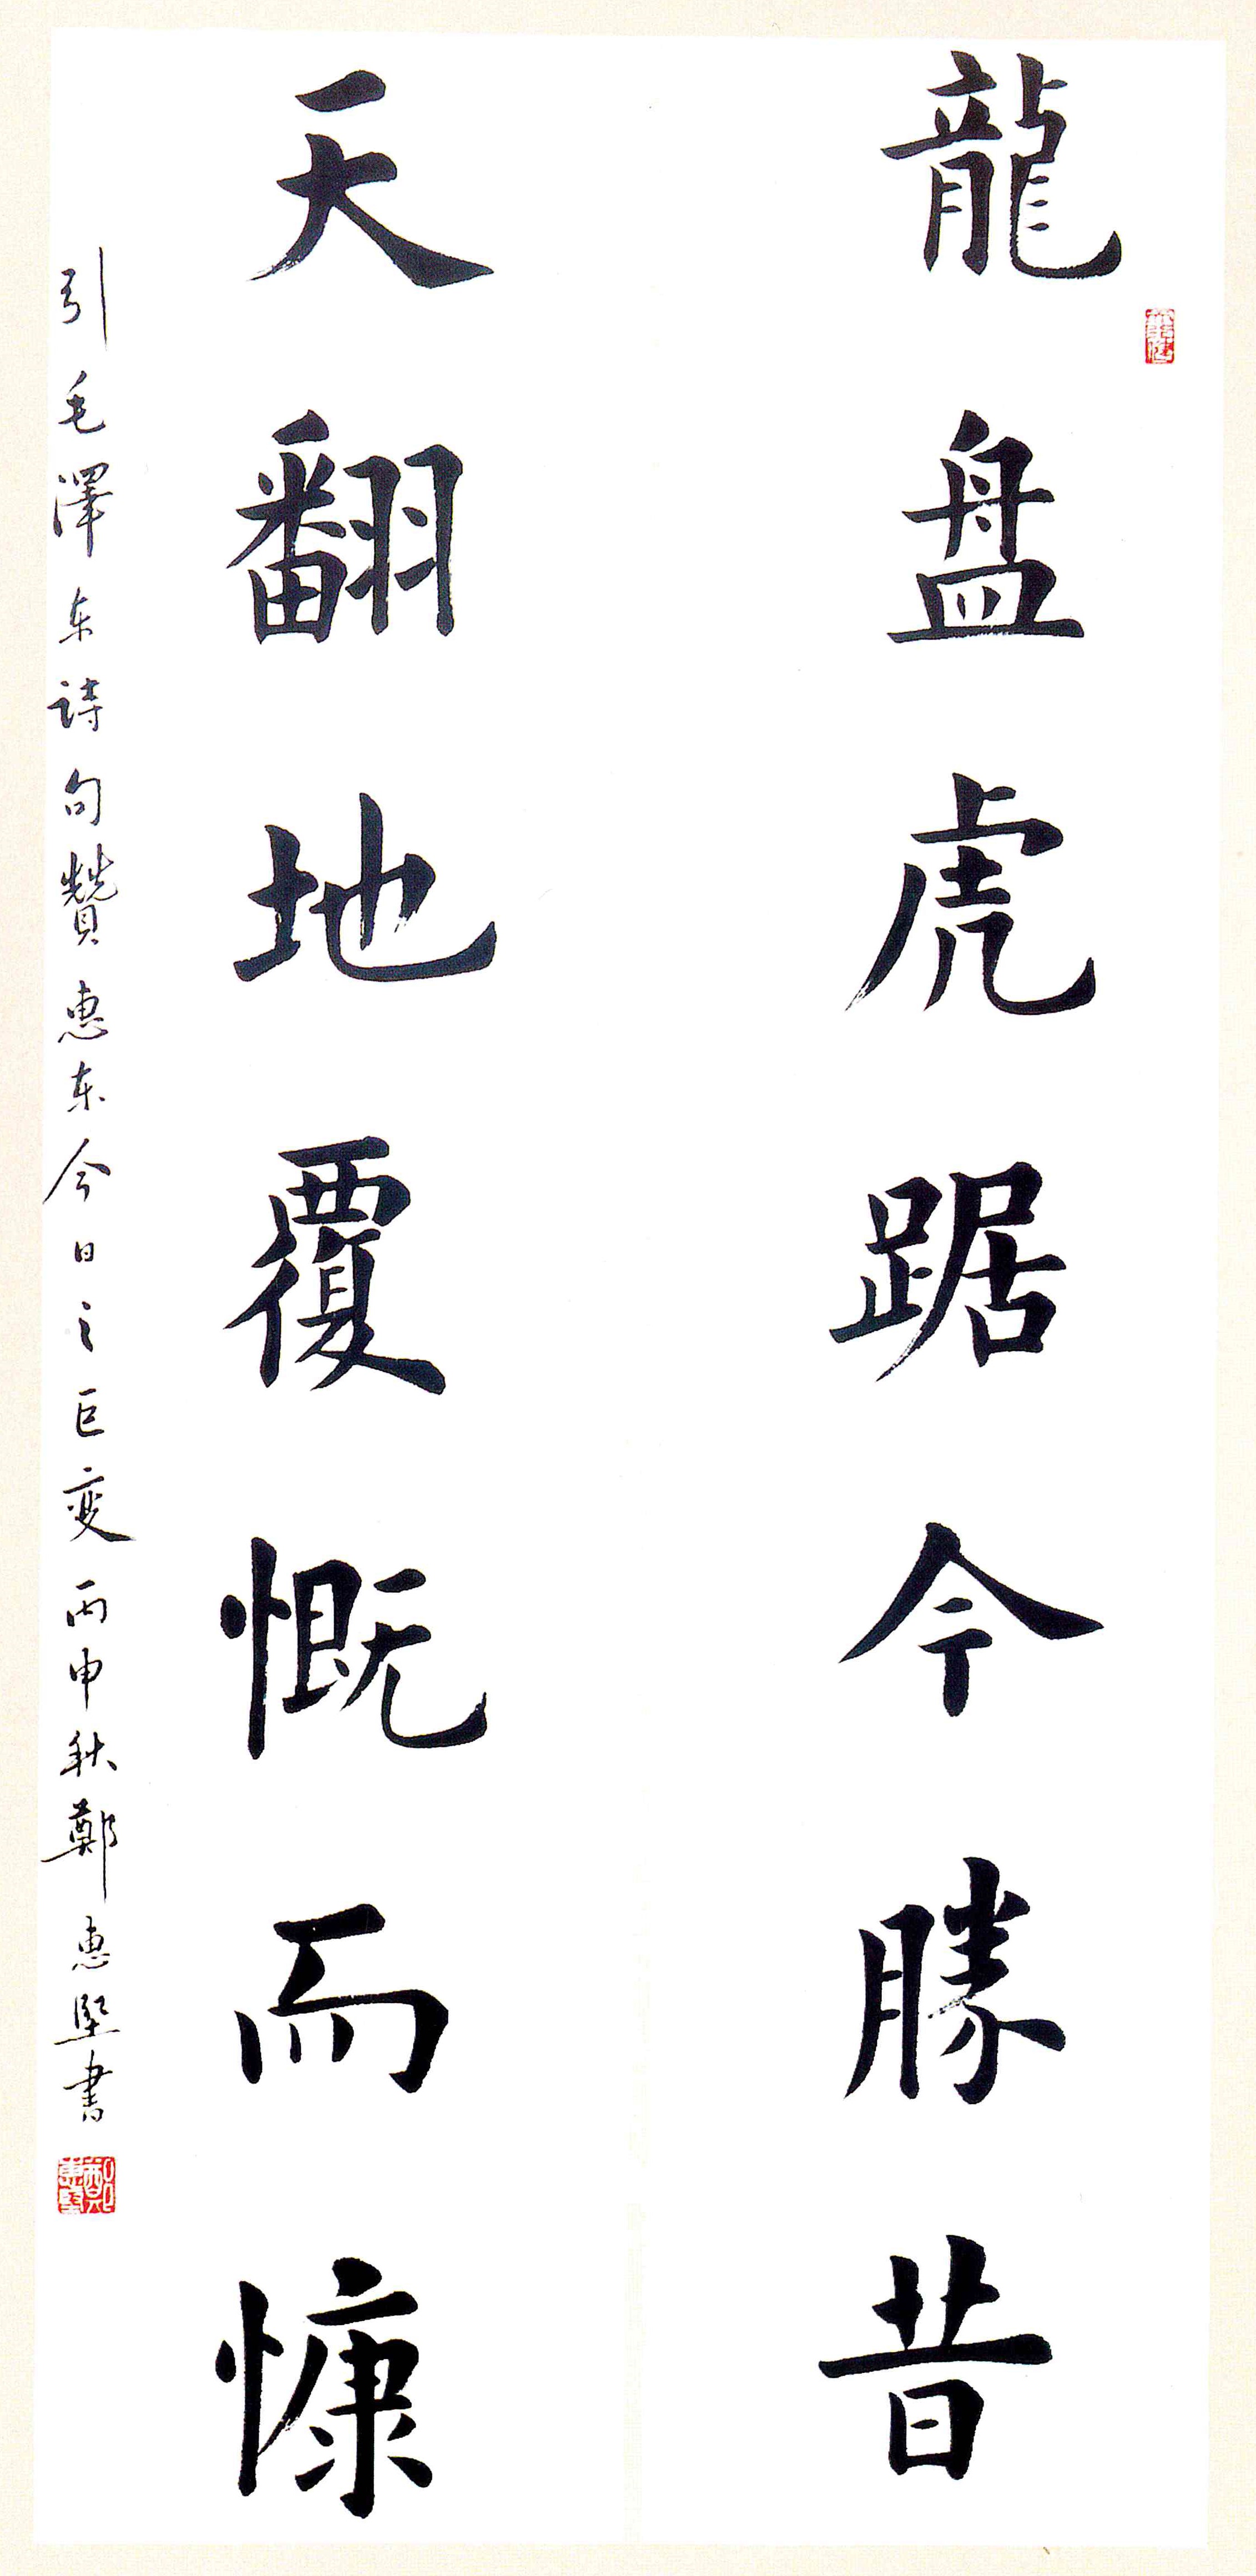 龍盘虎踞今勝昔
天翻地覆慨而慷
引毛澤东诗句贊惠东今日之巨变丙申秋鄭惠堅書
鄭惠堅